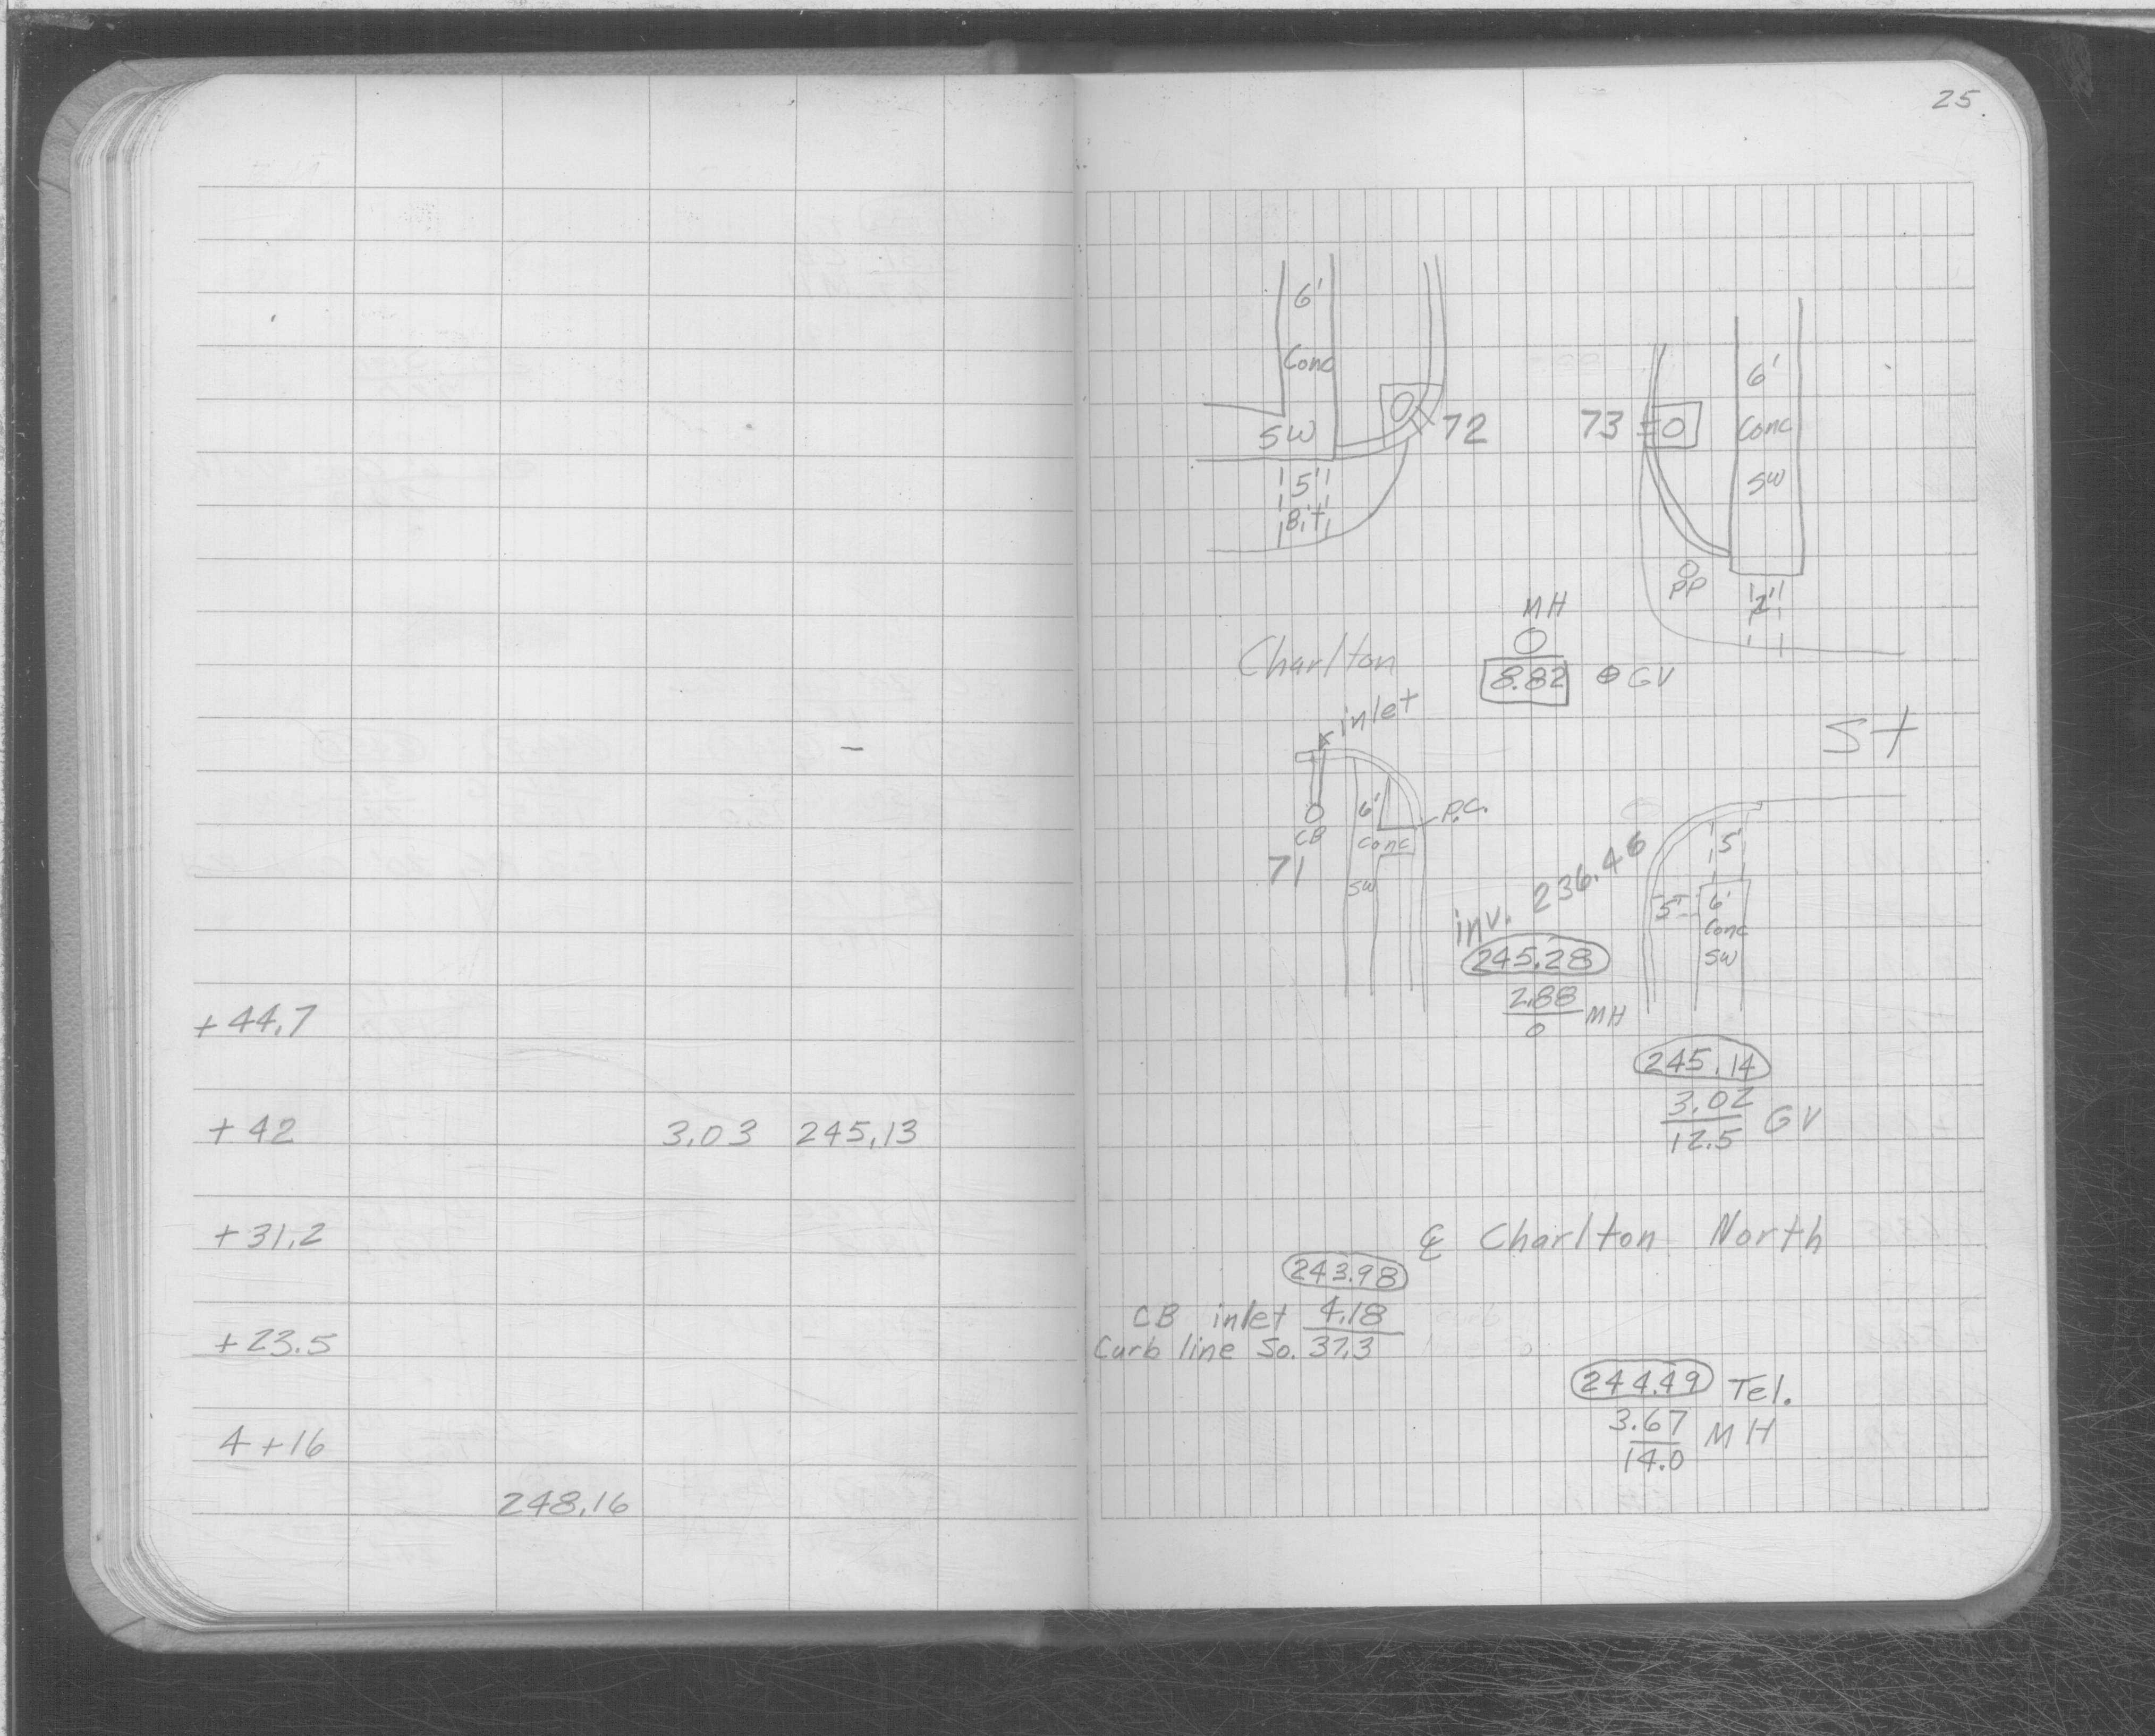 +44.7
+42 3.03 245.13
+31.2
+23.5
4+16
248.16
25
6'
Conc
SW
5'
Bit
72
73
6'
Conc
SW
PP
2'
MH
8.82
GV
Charlton
St
inlet
CB
71
6'
Conc
SW
P.C.
inv. 236.46
245.28
2.88
0
MH
5'
5'
6'
Conc
SW
245.14
3.02
12.5
GV
℄ Charlton North
243.98
CB inlet 4.18
Curb line So. 37.3
244.49 Tel.
3.67
14.0
MH